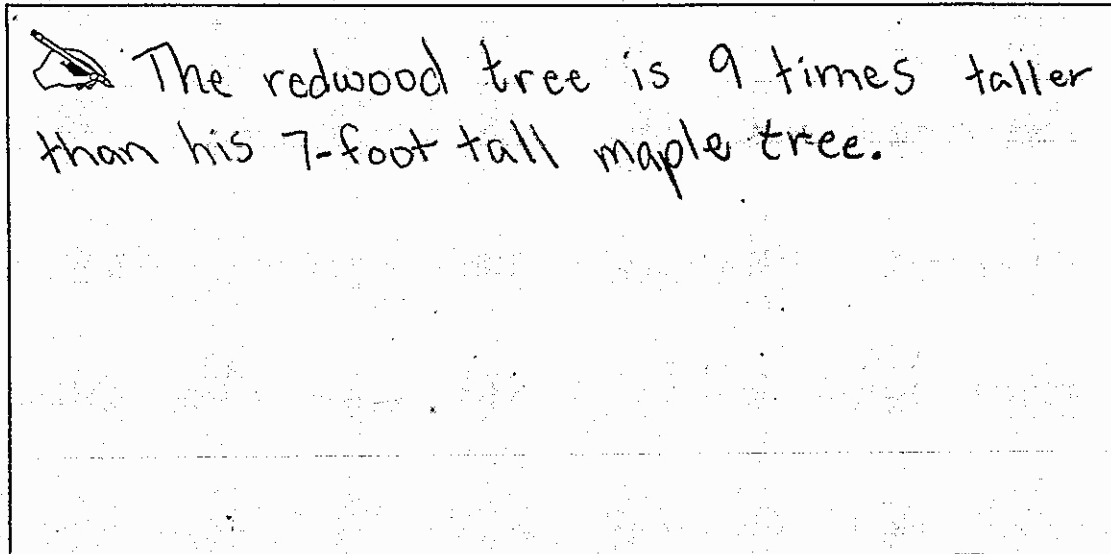 The redwood tree is 9 times taller
than his 7-foot tall maple tree.